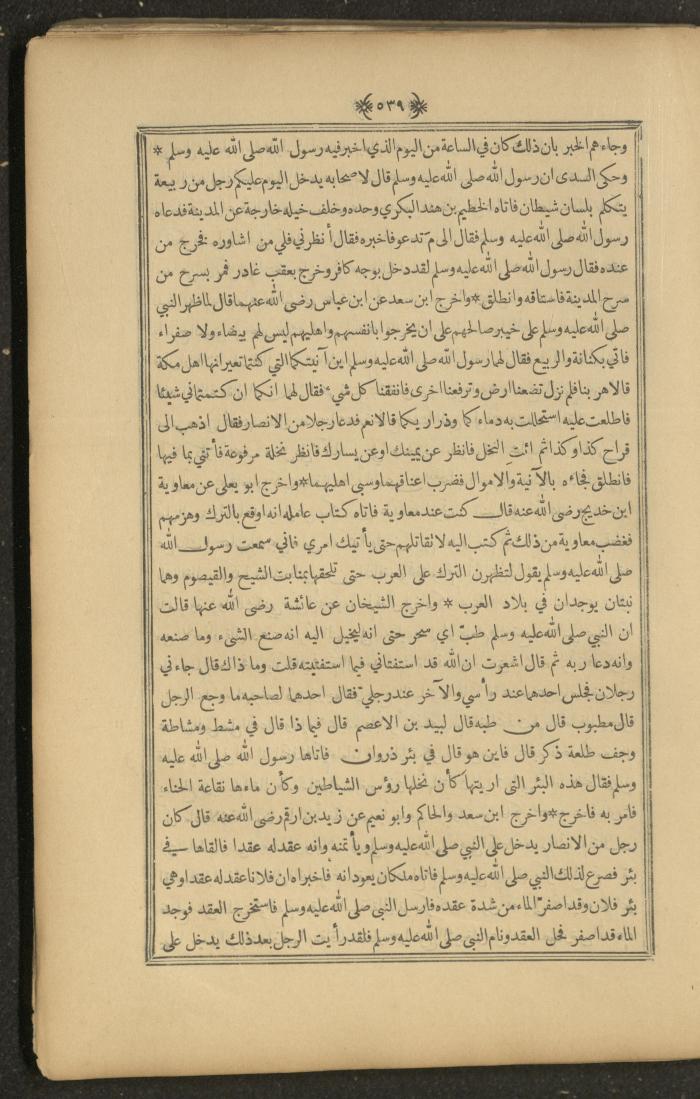 ٥٣٩
وجاءهم الخبر بان ذلك كان في الساعة من اليوم الذي اخبر فيه رسول الله صلى الله عليه وسلم *
وحكى السدى ان رسول الله صلى الله عليه وسلم قال لاصحابه يدخل اليوم عليكم رجل من ربيعة
يتكلم بلسان شيطان فاتاه الخطيم بن هند البكري وحده وخلف خيله خارجة عن المدينة فدعاه
رسول الله صلى الله عليه وسلم فقال الى مَ تدعو فاخبره فقال أنظرني فلي من اشاوره فخرج من
عنده فقال رسول الله صلى الله عليه وسلم لقد دخل بوجه كافر وخرج بعقب غادر فمر بسرح من
سرح المدينة فاستاقه وانطلق * واخرج ابن سعد عن ابن عباس رضى الله عنهما قال لما ظهر النبي
صلى الله عليه وسلم على خيبر صالحهم على ان يخرجوا بانفسهم واهليهم ليس لهم بيضاء ولا صفراء
فاتي بكنانة والربيع فقال لهما رسول الله صلى الله عليه وسلم اين آنيتكما التي كنتما تعيرانها اهل مكة
قالا هربنا فلم نزل تضعنا ارض وترفعنا اخرى فانفقنا كل شيء فقال لهما انكما ان كتمتماني شيئا
فاطلعت عليه استحللت به دماءكما وذراريكما قالا نعم فدعا رجلا من الانصار فقال اذهب الى
قراح كذا وكذا ثم ائتِ النخل فانظر عن يمينك او عن يسارك فانظر نخلة مرفوعة فأتني بما فيها
فانطلق فجاءه بالآنية والاموال فضرب اعناقهما وسبى اهليهما * واخرج ابو يعلى عن معاوية
ابن خديج رضى الله عنه قال كنت عند معاوية فاتاه كتاب عامله انه اوقع بالترك وهزمهم
فغضب معاوية من ذلك ثم كتب اليه لا تقاتلهم حتى يأتيك امري فاني سمعت رسول الله
صلى الله عليه وسلم يقول لتظهرن الترك على العرب حتى تلحقها بمنابت الشيح والقيصوم وهما
نبتان يوجدان في بلاد العرب * واخرج الشيخان عن عائشة رضى الله عنها قالت
ان النبي صلى الله عليه وسلم طبّ اي سحر حتى انه ليخيل اليه انه صنع الشيء وما صنعه
وانه دعا ربه ثم قال اشعرت ان الله قد استفتاني فيما استفتيته قلت وما ذاك قال جاءني
رجلان فجلس احدهما عند رأسي والآخر عند رجليّ فقال احدهما لصاحبه ما وجع الرجل
قال مطبوب قال من طبه قال لبيد بن الاعصم قال فيما ذا قال في مشط ومشاطة
وجف طلعة ذكر قال فاين هو قال في بئر ذروان فاتاها رسول الله صلى الله عليه
وسلم فقال هذه البئر التى اريتها كأن نخلها رؤس الشياطين وكأن ماءها نقاعة الحناء
فامر به فاخرج * واخرج ابن سعد والحاكم وابو نعيم عن زيد بن ارقم رضى الله عنه قال كان
رجل من الانصار يدخل على النبي صلى الله عليه وسلم ويأتمنه وانه عقد له عقدا فالقاها في
بئر فصرع لذلك النبي صلى الله عليه وسلم فاتاه ملكان يعودانه فاخبراه ان فلانا عقد له عقدا وهي
بئر فلان وقد اصفرّ الماء من شدة عقده فارسل النبى صلى الله عليه وسلم فاستخرج العقد فوجد
الماء قد اصفر فحل العقد ونام النبي صلى الله عليه وسلم فلقد رأيت الرجل بعد ذلك يدخل على